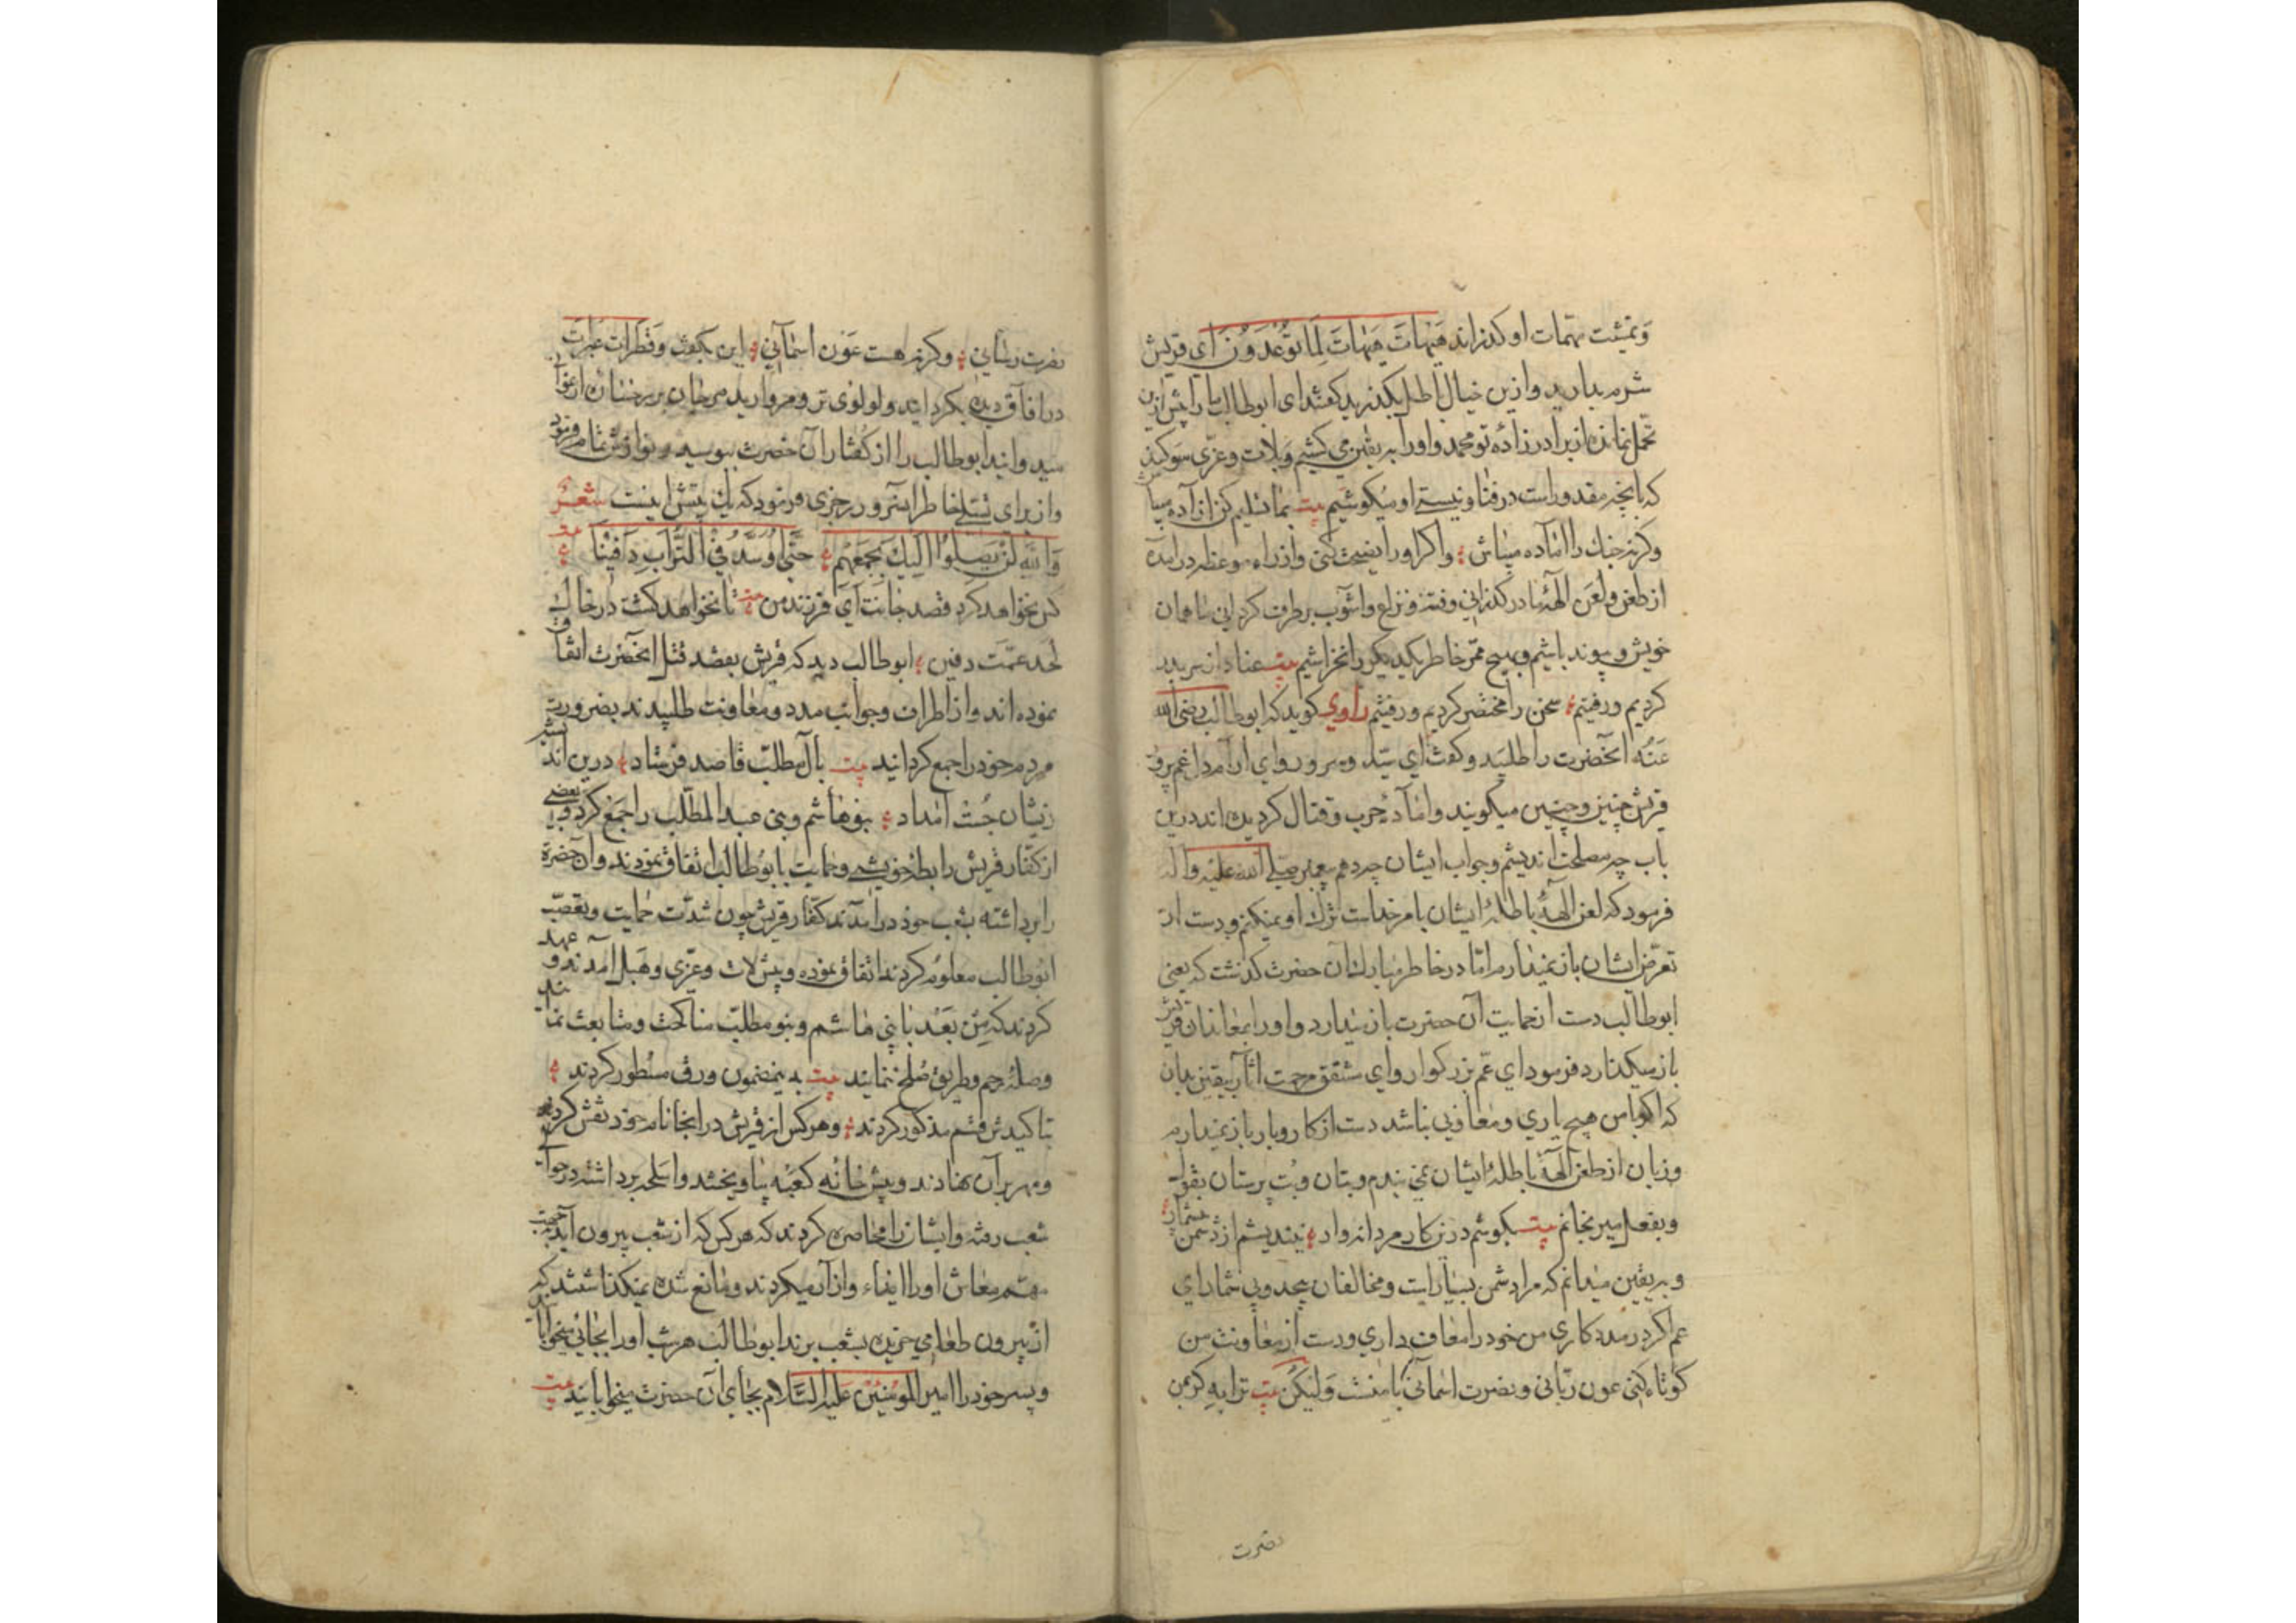 وتمشیت مهمات او کذراند هَیْهاتَ هَیْهاتَ لِمَا تُوعَدُونَ ای قریش
شرم بدارید وازین خیال باطل بکذرید کفتند ای ابوطالب ما را پیش ازین
تحمل نمانده از برادرزادهٔ تو محمد واورا بریقین می کشیم وبلات وعزی سوکند
که بانچه مقدور است در فنا ونیستی او میکوشیم بیت بما تسلیم کن ان
وکرنه جنك را آماده میباش واکر اورا نصیحت کنی واز راه موعظه درامده
از طعن ولعن الههٔ ما درکذرانی وفتنه ونزاع واشوب برطرف کردانی ما همان
خویش وپیوند باشیم وبهیچ ممر خاطر یکدیکر را نخراشیم بیت عنا از سر بدر
کردیم ورفتیم سخن را مختصر کردیم ورفتیم راوی کوید که ابوطالب رضی الله
عَنْه آنحضرت را طلبید وکفت ای سیّد وسرور وای ارام دل غم پرور
قریش چنین وچنین میکویند وامادهٔ حرب وقتال کردیده اند درین
باب چه مصلحت اندیشم وجواب ایشان چه دهم پیغمبر صلی الله علیه واله
فرمود که لعن الههٔ باطلهٔ ایشان بامر خداست ترك او نمیکنم ودست از
تعرض ایشان باز نمیدارم اما در خاطر مبارك آن حضرت کذشت که یعنی
ابوطالب دست از حمایت آن حضرت باز میدارد واورا بمعاندان قریش
باز میکذارد فرمود ای عمّ بزرکوار وای مشفق مرحمت اثار بیقین بدان
که اکر با من هیچ یاری ومعاونی نباشد دست از کار وبار باز نمیدارم
وزبان از طعن آلههٔ باطلهٔ ایشان نمی بندم وبتان وبت پرستان بقول
وبفعل میرنجانم بیت بکوشم درین کار مردانه وار نیندیشم از دشمن
وبریقین میدانم که مرا دشمن بسیار است ومخالفان بیحد وبی شمار ای
عم اکر در مدد کاری من خود را معاف داری ودست از معاونت من
کوتاه کنی عون ربانی ونصرت اسمانی با منست وَلیکن بیت ترا به کر بمن
نصرت
نصرت رسانی وکرنه هست عَون اسمانی این بکفت وقطرات عبرات
در افاق دیده بکردانید ولولوی تر ومروارید مرجان بر رخسان ارغوان
میدوانید ابوطالب را از کفتار آن حضرت ببوسید ونوازش تمام فرمود
واز برای تسلی خاطر انسرور رجزی فرمود که یك بیتش اینست شعر
وَاللّه لَنْ یَصِلُوا اِلَیْكَ بِجَمْعِهِمْ حَتّی اُوَسَّدَ فِی التُّرابِ دَفِینًا
کس نخواهد کرد قصد جانت ای فرزند من تا نخواهد کشت در خاك
لحد عمّت دفین ابوطالب دید که قریش بقصد قتل انحضرت اتفاق
نموده اند واز اطراف وجوانب مدد ومعاونت طلبیدند بضرورت
مردم خود را جمع کردانید بیت بال مطلب قاصد فرستاد درین اند
زیشان جست امداد بنوهاشم وبنی عبد المطلب را جمع کرد وبعضی
از کفار قریش را بطهٔ خویشی وحمایت با ابوطالب اتفاق نمودند وان حضرة
را برداشته بشعب خود درامدند کفار قریش چون شدّت حمایت وتعصب
ابوطالب معلوم کردند اتفاق نموده وپیش لات وعزی وهبل آمدند وعهد
کردند که مِنْ بَعْد با بنی هاشم وبنو مطلب مناکحت ومتابعت نما
وصلهٔ رحم وطریق صلح ننمایند بیت بدینمضمون ورق مسطور کردند
بتاکیدش قسم مذکور کردند وهرکس از قریش در انجا نام خود نقش کردند
ومهر بران نهادند وپیش خانه کعبه بیاویختند واسلحه برداشته در حوالی
شعب رفته وایشان را محاصره کردند که هرکس که از شعب بیرون آید بجهت
مهم معاش اورا ایذاء وازار میکردند ومانع شده نمیکذاشتند که
از بیرون طعامی خریده بشعب برند ابوطالب هر شب اورا بجائی میخوابانید
وپسر خود را امیر المؤمنین علیه السّلام بجای آن حضرت میخوابانید بیت